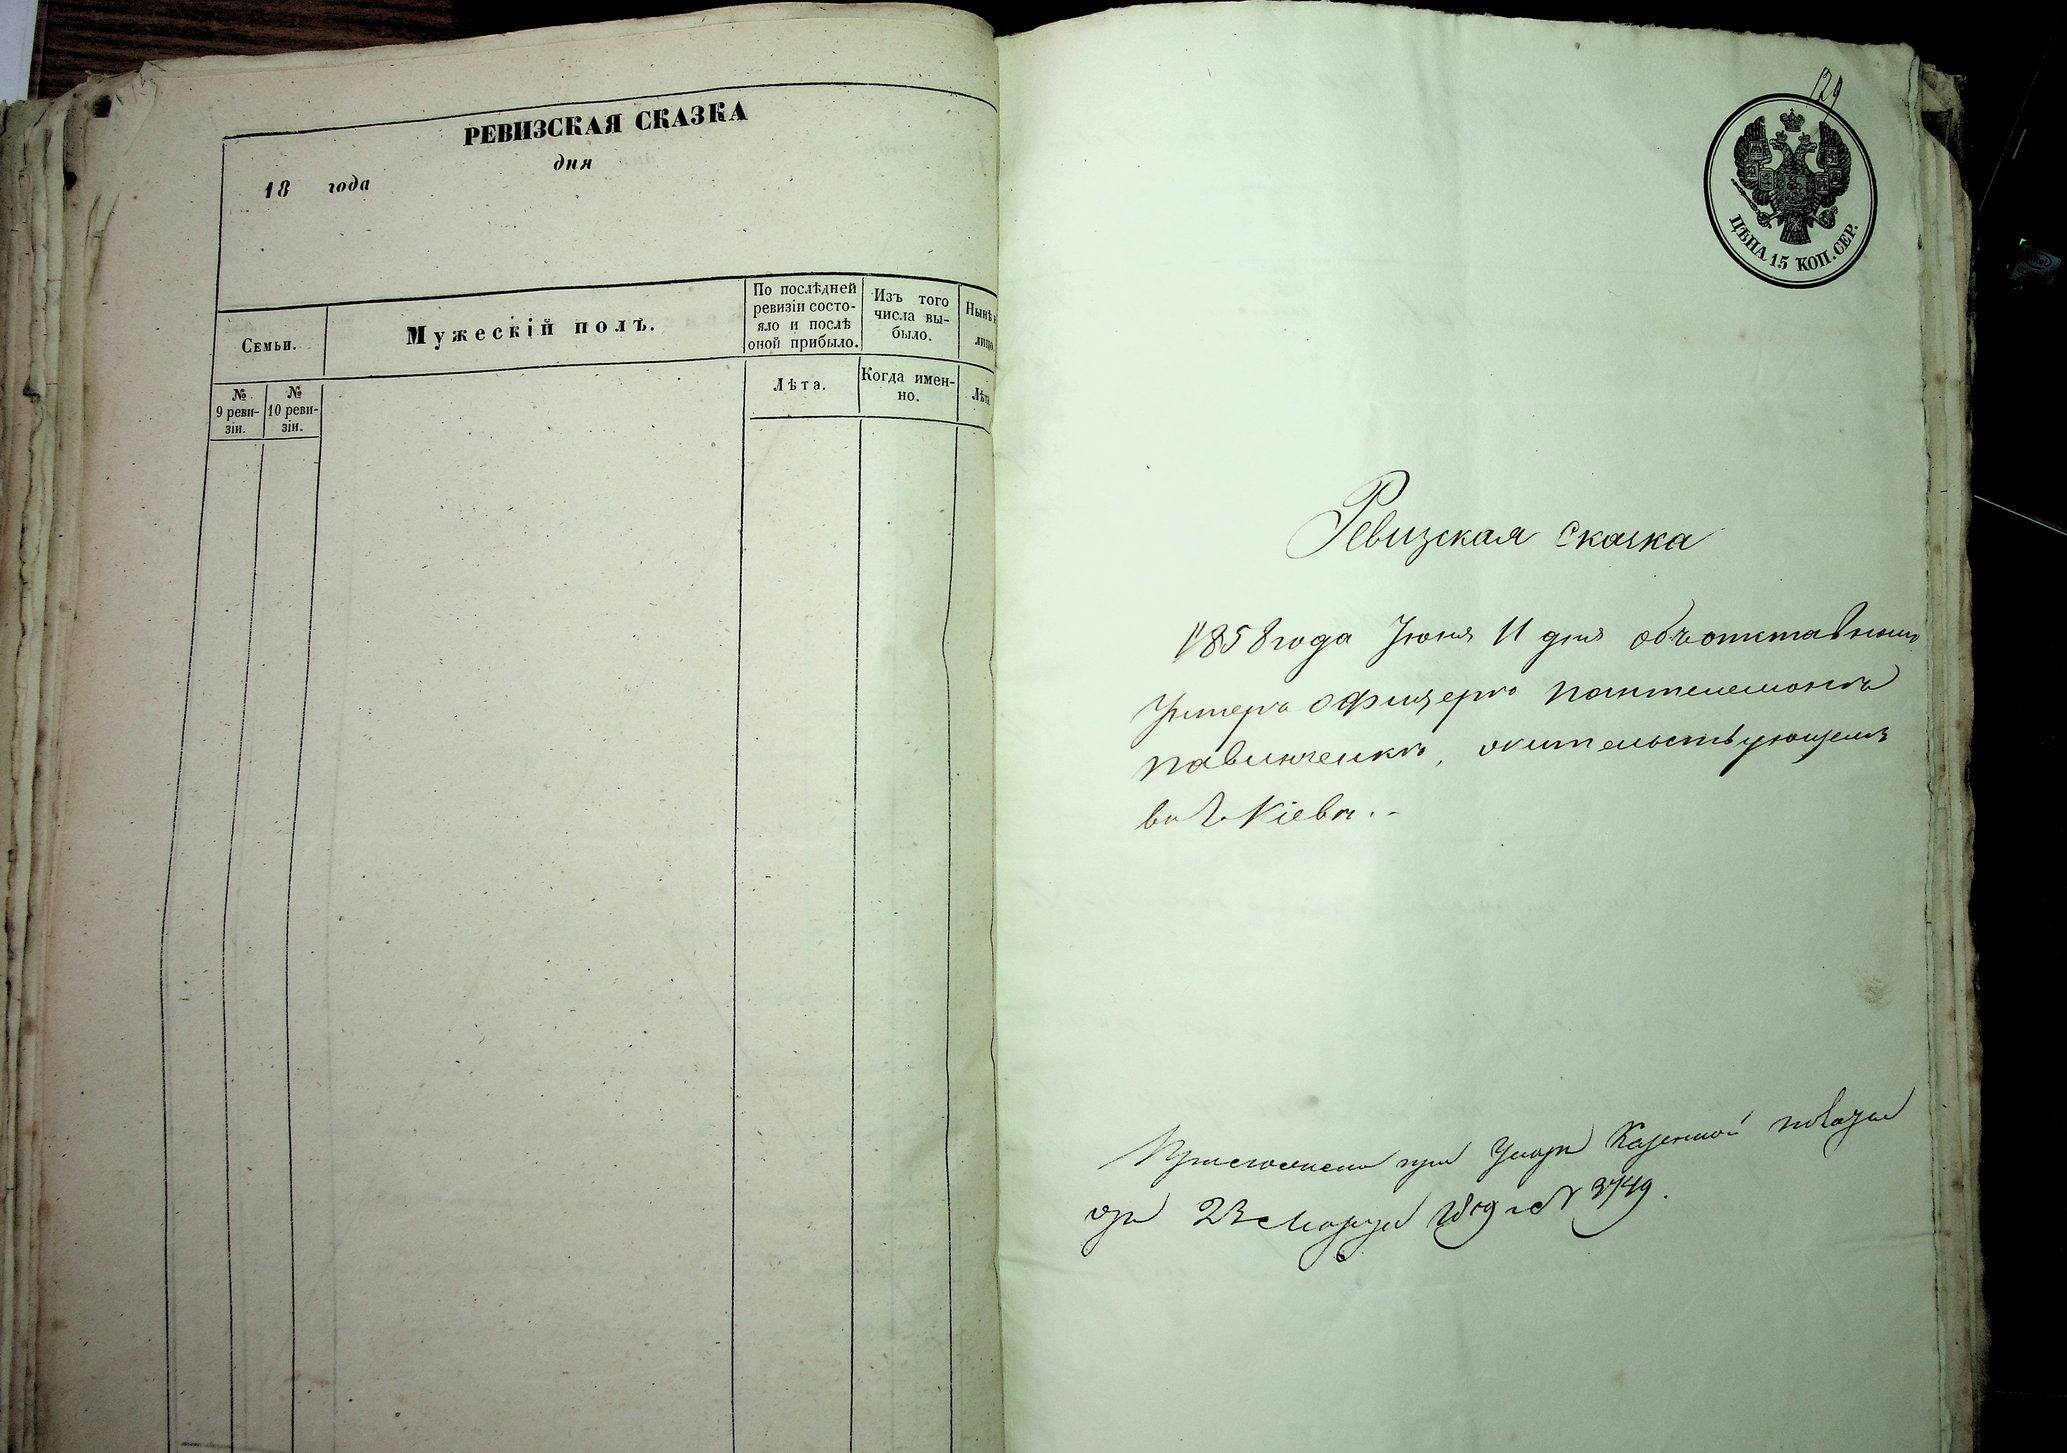 РЕВИЗСКАЯ СКАЗКА
дня
18 года
Семьи.
Мужескій полъ.
По послѣдней
ревизіи состо-
яло и послѣ
оной прибыло.
Изъ того
числа вы-
было.
Нынѣ
лицо
№
9 реви-
зіи.
№
10 реви-
зіи.
Лѣта.
Когда имен-
но.
Лѣта
129
ЦѢНА 15 КОП. СЕР.
Ревизская сказка
1858 года Июня 11 дня объ отставномъ
Унтеръ офицерѣ Пантелемонѣ
жительствующемъ
въ г. Кіевѣ.
при Указѣ Казенной
23 Марта 1859 г. № 3749.